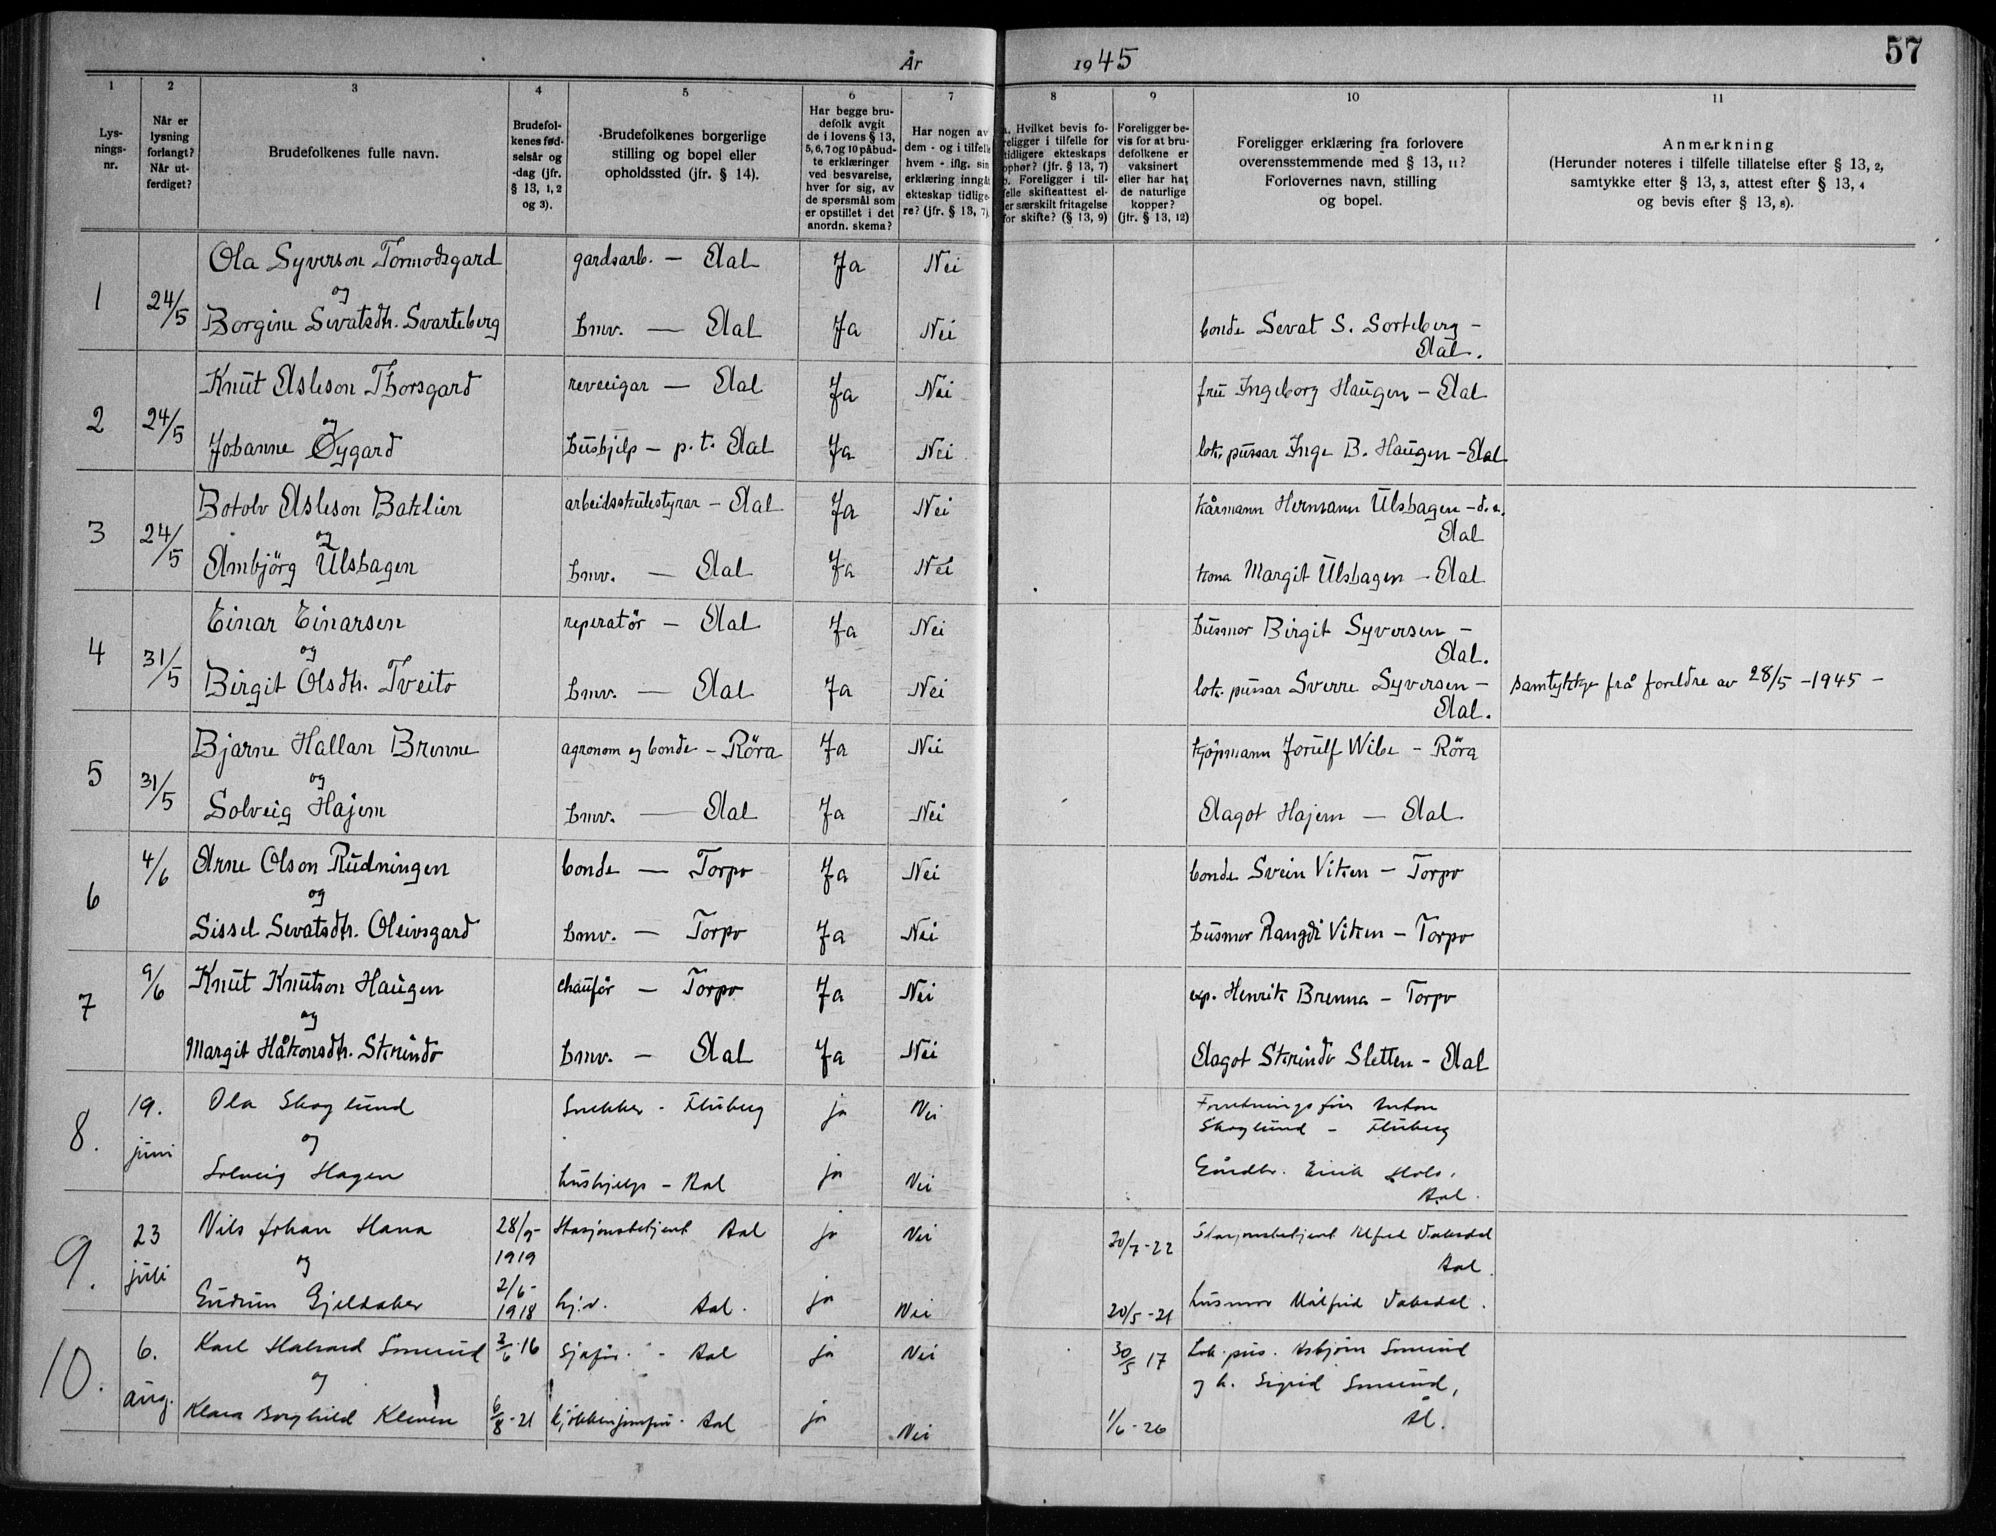 År 1945
57
1 2 3 4 5 6 7 8 9 10 11
Lys-
nings-
nr.
Når er
lysning
forlangt?
Når ut-
ferdiget?
Brudefolkenes fulle navn.
Brudefol-
kenes fød-
selsår og
-dag (jfr.
§ 13, 1, 2
og 3).
Brudefolkenes borgerlige
stilling og bopel eller
opholdssted (jfr. § 14).
Har begge bru-
defolk avgit
de i lovens § 13,
5, 6, 7 og 10 påbud-
te erklæringer
ved besvarelse,
hver for sig, av
de spørsmål som
er opstillet i det
anordn. skema?
Har nogen av
dem - og i tilfelle
hvem - iflg. sin
erklæring inngåt
ekteskap tidlige-
re? (jfr. § 13, 7).
a. Hvilket bevis fo-
religger i tilfelle for
tidligere ekteskaps
ophør? (jfr. § 13, 7)
b. Foreligger i til-
felle skifteattest el-
ler særskilt fritagelse
for skifte? (§ 13, 9)
Foreligger be-
vis for at bru-
defolkene er
vaksinert
eller har hat
de naturlige
kopper?
(jfr. § 13, 12)
Foreligger erklæring fra forlovere
overensstemmende med § 13, 11?
Forlovernes navn, stilling
og bopel.
Anmerkning
(Herunder noteres i tilfelle tillatelse efter § 13, 2,
samtykke efter § 13, 3, attest efter § 13, 4
og bevis efter § 13, 8).
Ola Syverson Tormodsgard gardsarb. — Aal Ja Nei
1 24/5 og
Borgine Sevatsdtr. Svarteberg hmv. — Aal Ja Nei bonde Sevat S. Sorteberg -
Aal.
Knut Asleson Thorsgard reveeigar — Aal Ja Nei fru Ingeborg Haugen - Aal
2 24/5 og
Johanne Øygard hushjelp - p.t. Aal Ja Nei lok. pussar Inge B. Haugen - Aal
Botolv Asleson Baklien arbeidsskulestyrar - Aal Ja Nei kårmann Hermann Ulshagen - d.e.
Aal
3 24/5 og
Ambjörg Ulshagen hmv. — Aal Ja Nei kona Margit Ulshagen - Aal
Einar Einarsen reperatör — Aal Ja Nei husmor Birgit Syversen -
Aal.
4 31/5 og
Birgit Olsdtr. Tveito hmv. — Aal Ja Nei lok. pussar Sverre Syversen - samtykkje frå foreldre av 28/5 -1945 -
Aal.
Bjarne Hallan Brenne agronom og bonde - Röra Ja Nei kjöpmann Jorulf Wibe - Röra
5 31/5 og
Solveig Hajem hmv. — Aal Ja Nei Aagot Hajem — Aal
4/6 Arne Olson Rudningen bonde — Torpo Ja Nei bonde Svein Viken - Torpo
6 og
Sissel Sevatsdtr. Oleivsgard hmv. — Torpo Ja Nei husmor Rangdi Viken - Torpo
9/6 Knut Knutson Haugen chauför — Torpo Ja Nei exp. Henrik Brenna - Torpo
7 og
Margit Håkonsdtr. Skrindo hmv. — Aal Ja Nei Aagot Skrindo Sletten - Aal
19. Ola Skoglund Snekker - Fluberg ja Nei Forretningsfør Anton
Skoglund - Fluberg
8. juni og
Solveig Hagen hushjelp - Aal ja Nei Gårdbr. Eirik
Aal.
23 Nils Johan Hana 28/9- 1919 Stasjonsbetjent Aal ja Nei 20/7-22 Stasjonsbetjent Alfred Vaksdal
Aal.
9. juli og
Gudrun Gjeldaker 2/6- 1918 hj.v. Aal. ja Nei 20/5-21 husmor Målfrid Vaksdal.
6. Karl Halvard Smerud 2/6-16 Sjåfør - Aal ja Nei 30/5 17 Lok.puss. Asbjörn Smerud
10. aug. og og h. Sigrid Smerud,
Klara Borghild Kleven 6/8-21 kjökkenjomfru - Aal ja Nei 1/6-26 Ål.